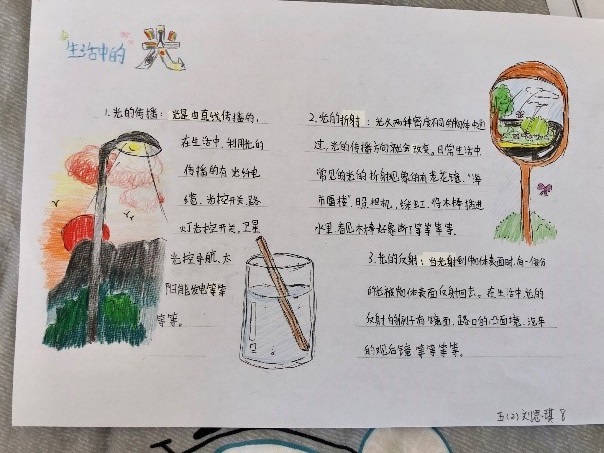 生活中的 光
1.光的传播：光是由直线传播的，
在生活中，利用光的
传播的有光纤电
缆、光控开关、路
灯光控开关、卫星
光控导航、太
阳能发电等等
等等。
2.光的折射：光从两种密度不同的物体中通
过，光的传播方向就会改变。日常生活中
常见的光的折射现象的有老花镜、“海
市蜃楼”、照相机、彩虹、将木棒插进
水里看见木棒好像断了等等等等。
3.光的反射：当光射到物体表面时，有一部分
的光被物体表面反射回去。在生活中，光的
反射的例子有镜面、路口的凸面境、汽车
的观后镜等等等等。
五(2)刘